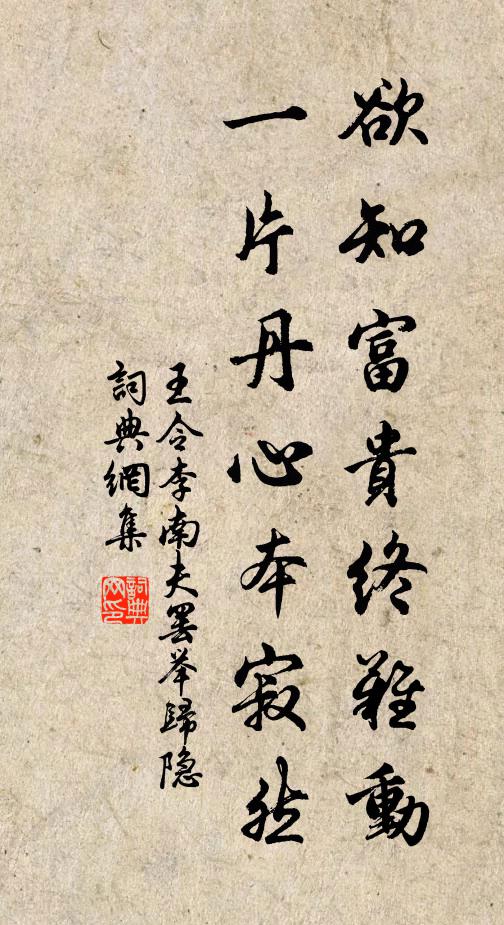 欲知富貴終難動
一片丹心本寂然
王令李南夫罢举歸隐
詞典網集
詞典
网印